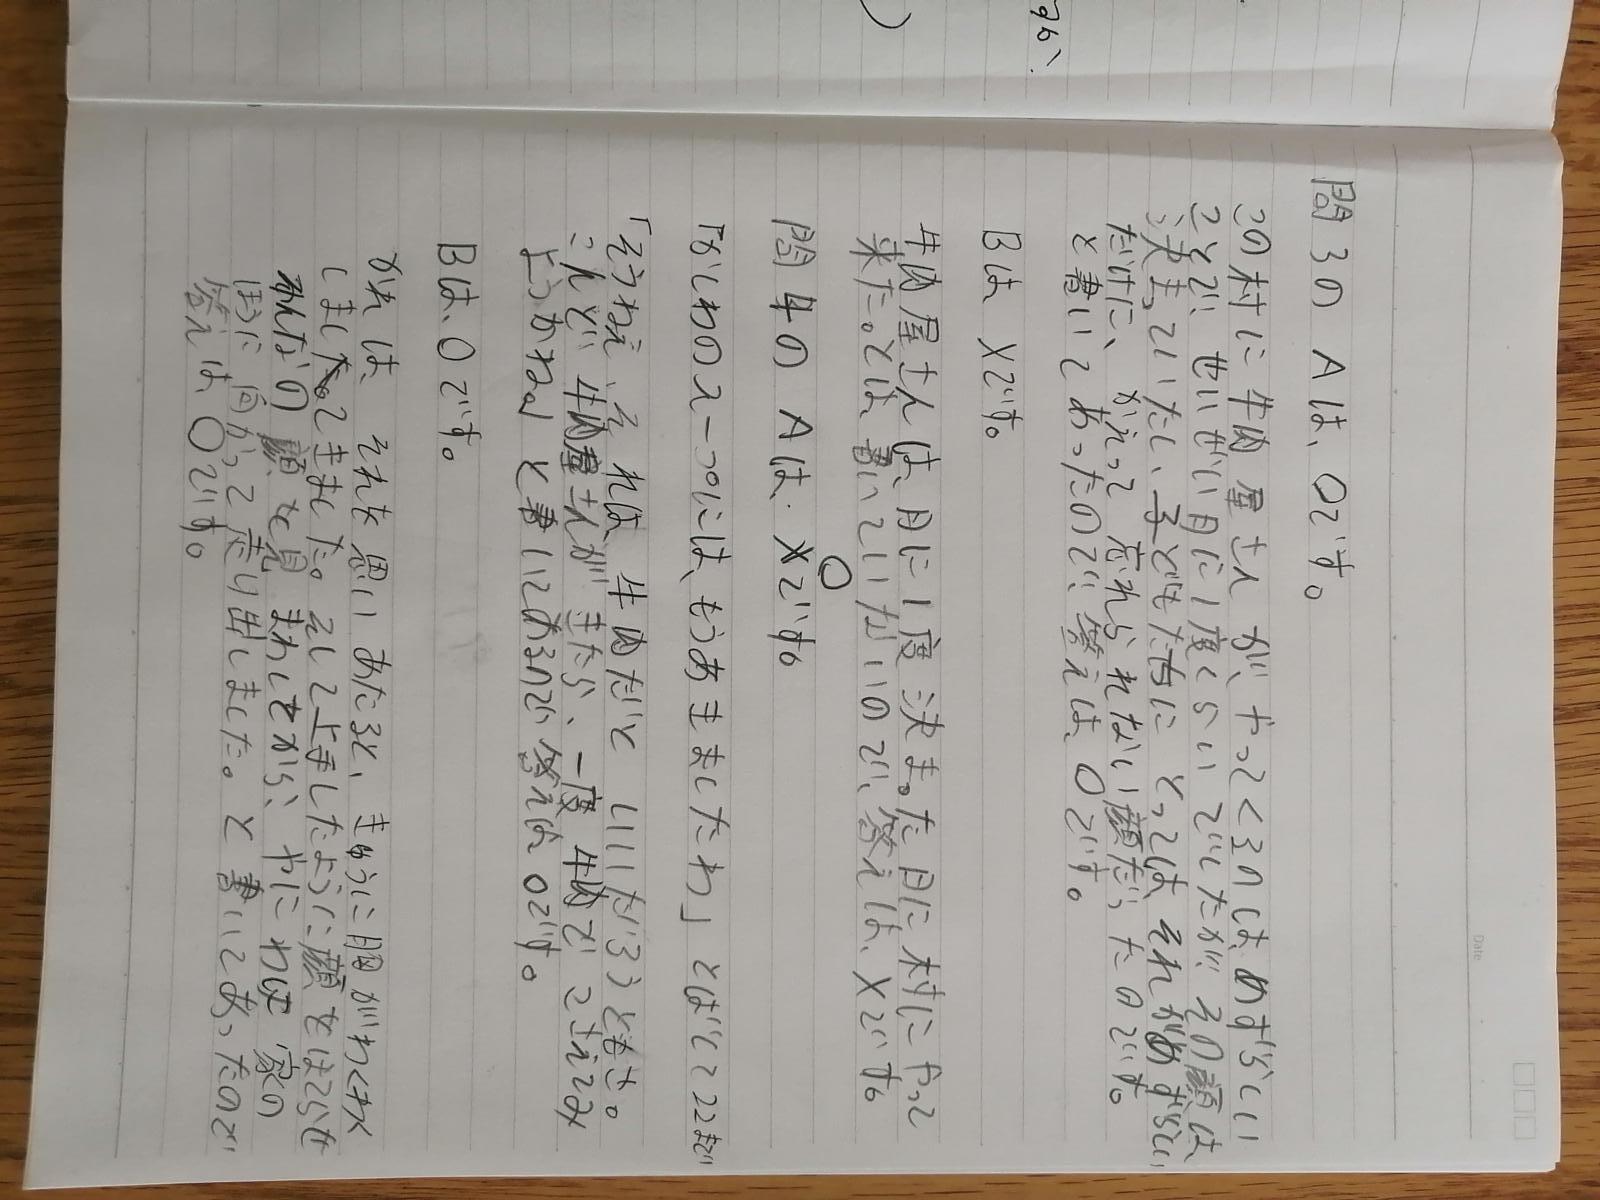 すが、
)
Date
問3の Aは、○です。
この村に牛肉屋さんが、やってくるのは、めずらしい
ことで、せいぜい月に1度くらいでしたが、その顔は
決まっていたし、子どもたちに とっては、それがめずらしい
だけに、かえって 忘れられない顔だったのです。
と書いてあったので、答えは、○です。
Bは ×です。
牛肉屋さんは、月に1度 決まった日に村にやって
来たっとは、書いていないので、答えは、×です。
○
問4の Aは、×です。
「かしわのスープには、もうあきましたわ」とばしこまで
「そうねえ、それは、牛肉だと いいだろうともさ。
こんど、牛肉屋さんが きたら、一度 牛肉でこさえてみ
ようかね」と書いてあるので、答えは、○です。
Bは、○です。
かれは、それを思いあたると、きゅうに胸がわくわく
しましてきました。そして上手したように顔をはてらせ
みんなの 顔を見まわしてから、やにわに 家の
ほうに向かって走り出しました。と書いてあったので
答えは、○です。